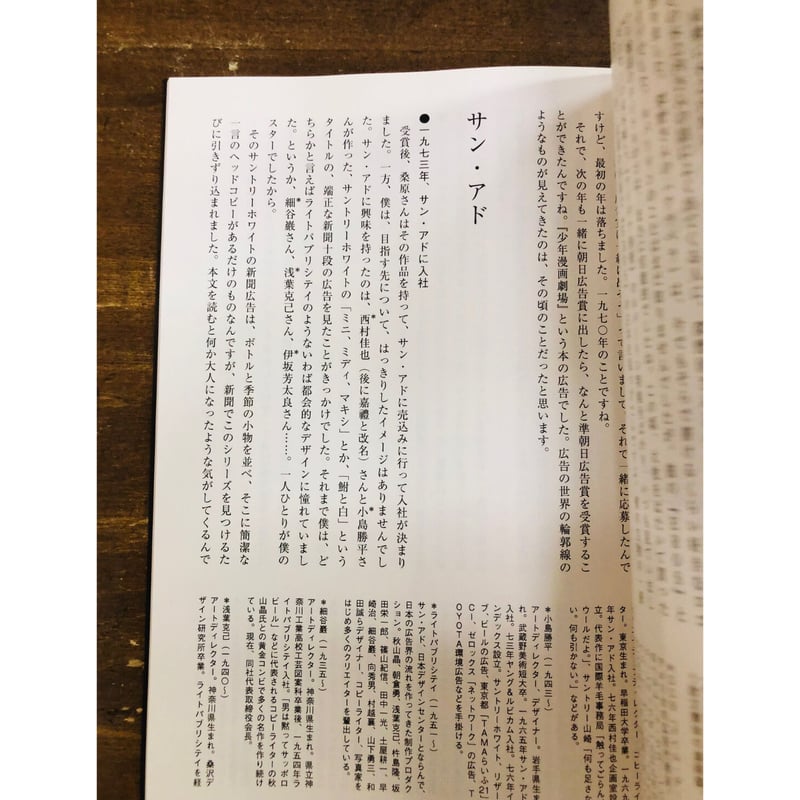 すけど、最初の年は落ちました。一九七〇年のことですね。
それで、次の年も一緒に朝日広告賞に出したら、なんと準朝日広告賞を受賞するこ
とができたんですね。『少年漫画劇場』という本の広告でした。広告の世界の輪郭線の
ようなものが見えてきたのは、その頃のことだったと思います。
サン・アド
●一九七三年、サン・アドに入社
受賞後、桑原さんはその作品を持って、サン・アドに売込みに行って入社が決まり
ました。一方、僕は、目指す先について、はっきりしたイメージはありませんでし
た。サン・アドに興味を持ったのは、西村佳也*(後に嘉禮と改名)さんと小島勝平*さ
んが作った、サントリーホワイトの「ミニ、ミディ、マキシ」とか、「鮒と白」という
タイトルの、端正な新聞十段の広告を見たことがきっかけでした。それまで僕は、ど
ちらかと言えばライトパブリシテイ*のようないわば都会的なデザインに憧れていまし
た。というか、細谷巖*さん、浅葉克己*さん、伊坂芳太良*さん……。一人ひとりが僕の
スターでしたから。
そのサントリーホワイトの新聞広告は、ボトルと季節の小物を並べ、そこに簡潔な
一言のヘッドコピーがあるだけのものなんですが、新聞でこのシリーズを見つけるた
びに引きずり込まれました。本文を読むと何か大人になったような気がしてくるんで
ター。東京生まれ。早稲田大学卒業。一九六
年サン・アド入社。七六年西村佳也企画室設
立。代表作に国際羊毛事務局「触ってごらん、
ウールだよ。」、サントリー山崎「何も足さな
い。何も引かない。」などがある。
*小島勝平(一九四三〜)
アートディレクター、デザイナー。岩手県生ま
れ。武蔵野美術短大卒。一九六五年サン・アド
入社。七三年ヤング&ルビカム入社。七六年イ
ンデックス設立。サントリーホワイト、リザー
ブ、ビールの広告、東京都「TAMAらいふ21」
CI、ゼロックス「ネットワーク」の広告、T
OYOTA環境広告などを手掛ける。
*ライトパブリシテイ(一九五一〜)
サン・アド、日本デザインセンターとならんで、
日本の広告界の流れを作ってきた制作プロダク
ション。秋山晶、朝倉勇、浅葉克己、杵島隆、坂
田栄一郎、篠山紀信、田中一光、土屋耕一、早
崎治、細谷巖、向秀男、村越襄、山下勇三、和
田誠らデザイナー、コピーライター、写真家を
はじめ多くのクリエイターを輩出している。
*細谷巖(一九三五〜)
アートディレクター。神奈川県生まれ。県立神
奈川工業高校工芸図案科卒業後、一九五四年ラ
イトパブリシテイ入社。「男は黙ってサッポロ
ビール」などに代表されるコピーライターの秋
山晶氏との黄金コンビで多くの名作を作り続け
ている。現在、同社代表取締役会長。
*浅葉克己(一九四〇〜)
アートディレクター。神奈川県生まれ。桑沢デ
ザイン研究所卒業。ライトパブリシテイを経